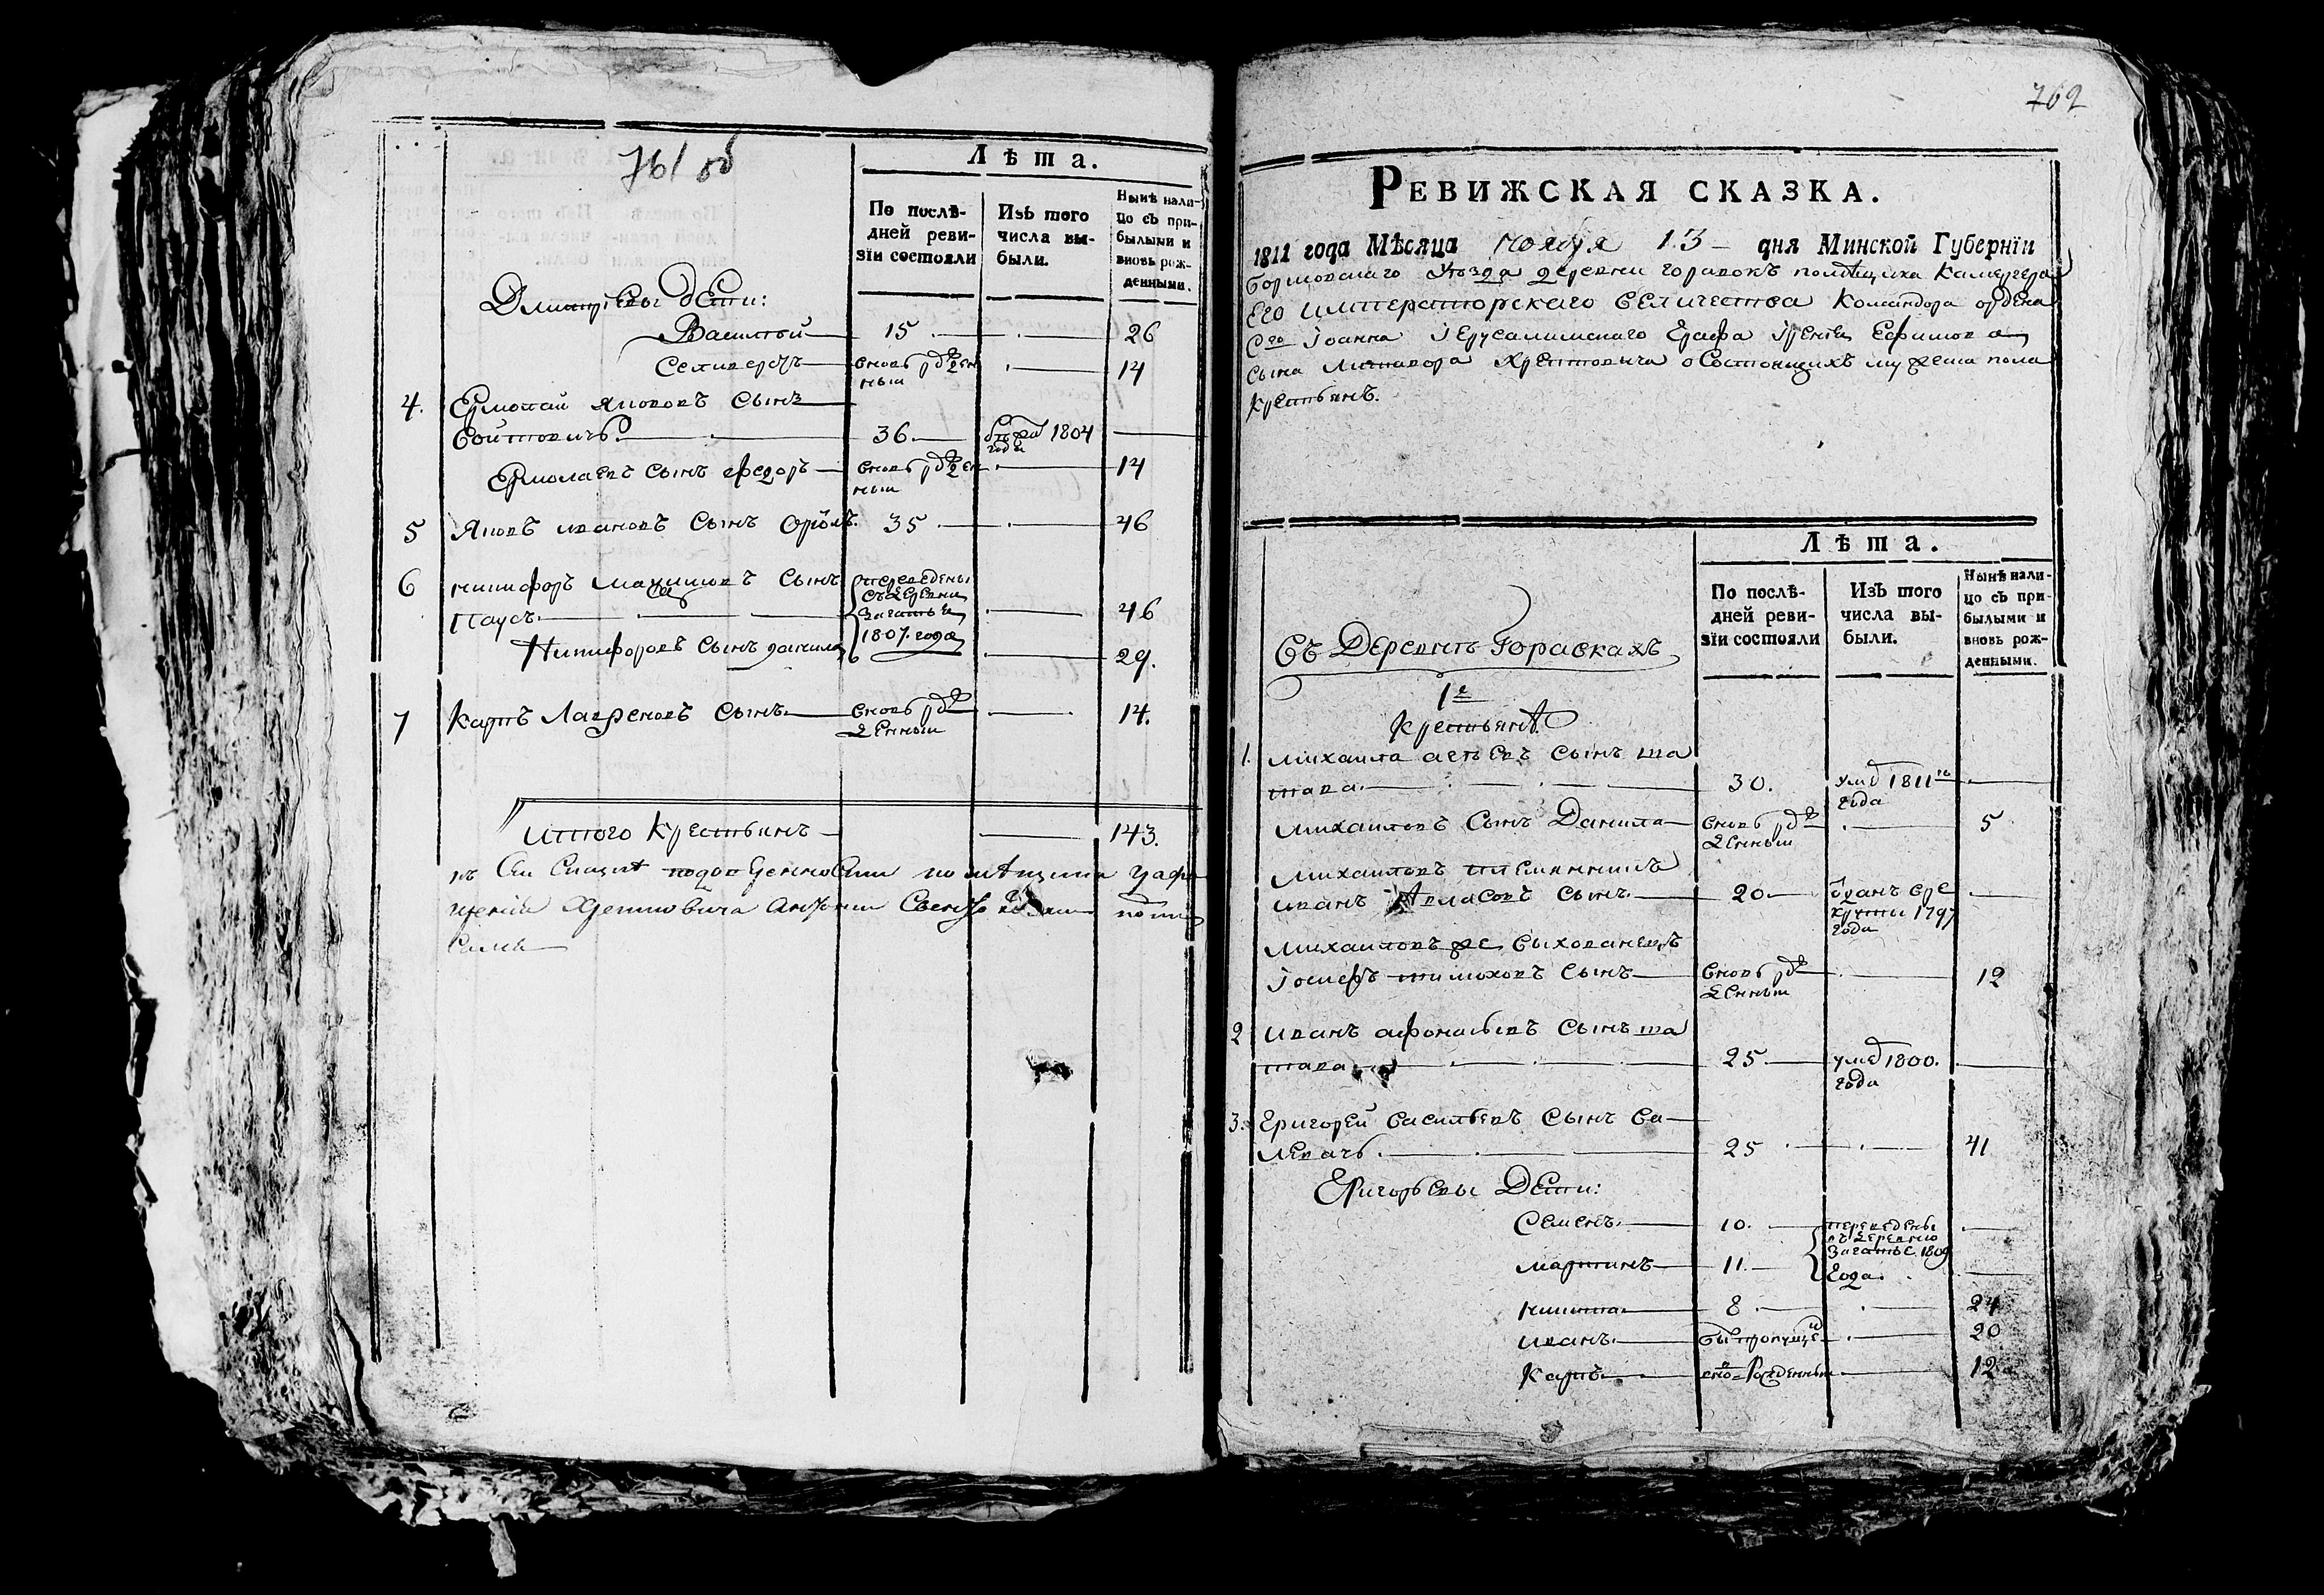 761 об
Лѣта.
По послѣ-
дней реви-
зїи состояли
Изъ того
числа вы-
были.
Нынѣ нали-
цо съ при-
былыми и
вновь рож-
денными.
Дмитріевы дети:
Василий 15 26
Селиверстъ вновь рожден
ныи 14
4. Ермолай Якововъ сынъ
Войтовичъ 36 бѣжал 1804
года
Ермолаевъ сынъ Федоръ вновь рожден
ныи 14
5 Яковъ Ивановъ сынъ Орёлъ 35 46
6 Никифоръ сынъ
Паусъ 46
переведены
съ деревни
Загатья
1807. года
Никифоровъ сынъ Данила 29.
7 Карпъ Лавреновъ сынъ вновь рож
денныи 14.
Итого крестьянъ 143.
къ сеи сказке по доверенности помѣщика Графа
Хрептовича
762
Ревижская сказка.
1811 года Мѣсяца ноября 13 дня Минской Губернїи
Борисовскаго уѣзда деревни Горавокъ помѣщика Камергера
Его Императорскаго Величества Командора ордена
Сго Іоанна Іерусалимскаго Графа Иренея Ефимова
сына Литавора Хрептовича о состоящихъ мужеска пола
крестьянъ.
Лѣта.
По послѣ-
дней реви-
зїи состояли
Изъ того
числа вы-
были.
Нынѣ нали-
цо съ при-
былыми и
вновь рож-
денными.
Въ Деревнѣ Горавкахъ
1е
Крестьянѣ
1. Михаила сынъ Ша
пара 30. умер 1811го
года
Михаиловъ сынъ Данила вновь рож
денныи 5
Михаиловъ племянникъ
Иванъ Авласовъ сынъ 20 въ ре
круты 1797
года
Михаиловъ же выхованецъ
Іосифъ Тимоховъ сынъ вновь рож
денныи 12
2 Иванъ Афонасьевъ сынъ Ша
пара 25 умер 1800.
года
3. Григорей Васильевъ сынъ Ва
левачъ 25 41
Григорьевы Дети:
Семенъ 10.
Мартинъ 11.
переведены
въ деревню
Загатье 1809
года.
Никита 8 24
Иванъ был пропущен 20
Карпъ вно рожденныи 12